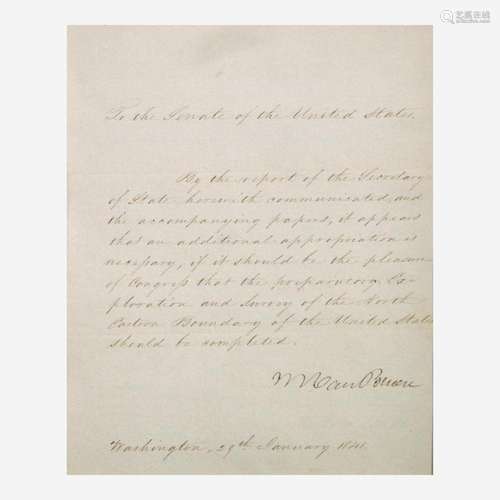 艺狐在线
To the Senate of the United States.
By the report of the Secretary
of State herewith communicated, and
the accompanying papers, it appears
that an additional appropriation is
necessary, if it should be the pleasure
of Congress that the preparatory Ex-
ploration and Survey of the North
Eastern Boundary of the United States
should be completed.
M Van Buren
Washington, 29th January 1841.